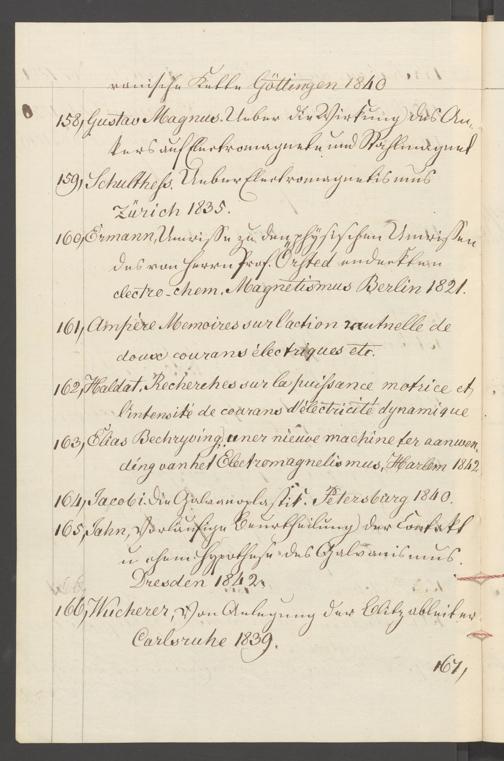 vanische Kette Göttingen 1840
158, Gustav Magnus. Ueber die Wirkung des An-
kers auf Electromagnete und Stahlmagnet
159, Schulthess. Ueber Electromagnetismus
Zürich 1835.
160, Ermann, Umrisse zu den physischen Umrissen
des von Herrn Prof. Örsted entdeckten
electro-chem. Magnetismus Berlin 1821.
161, Ampère Memoires sur l'action mutuelle de
doux courans électriques etc.
162, Haldat. Recherches sur la puissance motrice et
l'intensité de courans d'électricité dynamique
163, Elias Bechryving uner nieuwe machine ter aanwen
ding van het Electromagnetismus, Harlem 1842
164, Jacobi. Die Galvanoplastik. Petersburg 1840.
165, Jahn, Vorläufige Beurtheilung der Contakt
u chem: Hypothese des Galvanismus.
Dresden 1842.
166, Wucherer, Von Anlegung der Blitzableiter.
Carlsruhe 1839.
167,